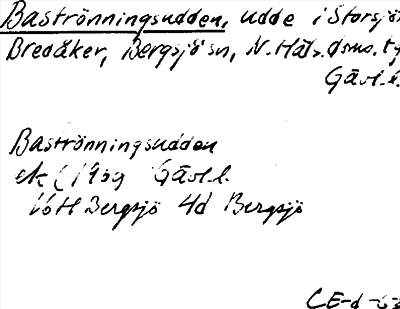 Baströnningsudden, udde i Storsjö
Bredåker, Bergsjö sn, N. Häls. dsms. tg
Gävl. l.
Baströnningsudden
ek 1969 Gävl. l.
16H Bergsjö 4d Bergsjö
CE-d-63